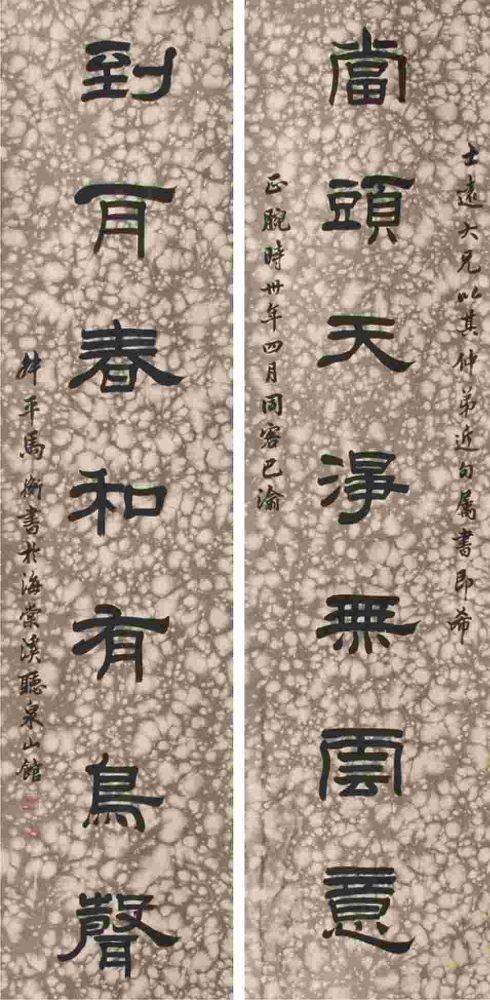 士遠大兄以其仲弟近句属書即希
當頭天淨無雲意
正腕時卅年四月同客巴渝
到耳春和有鳥聲
叔平馬衡書於海棠溪聽泉山館